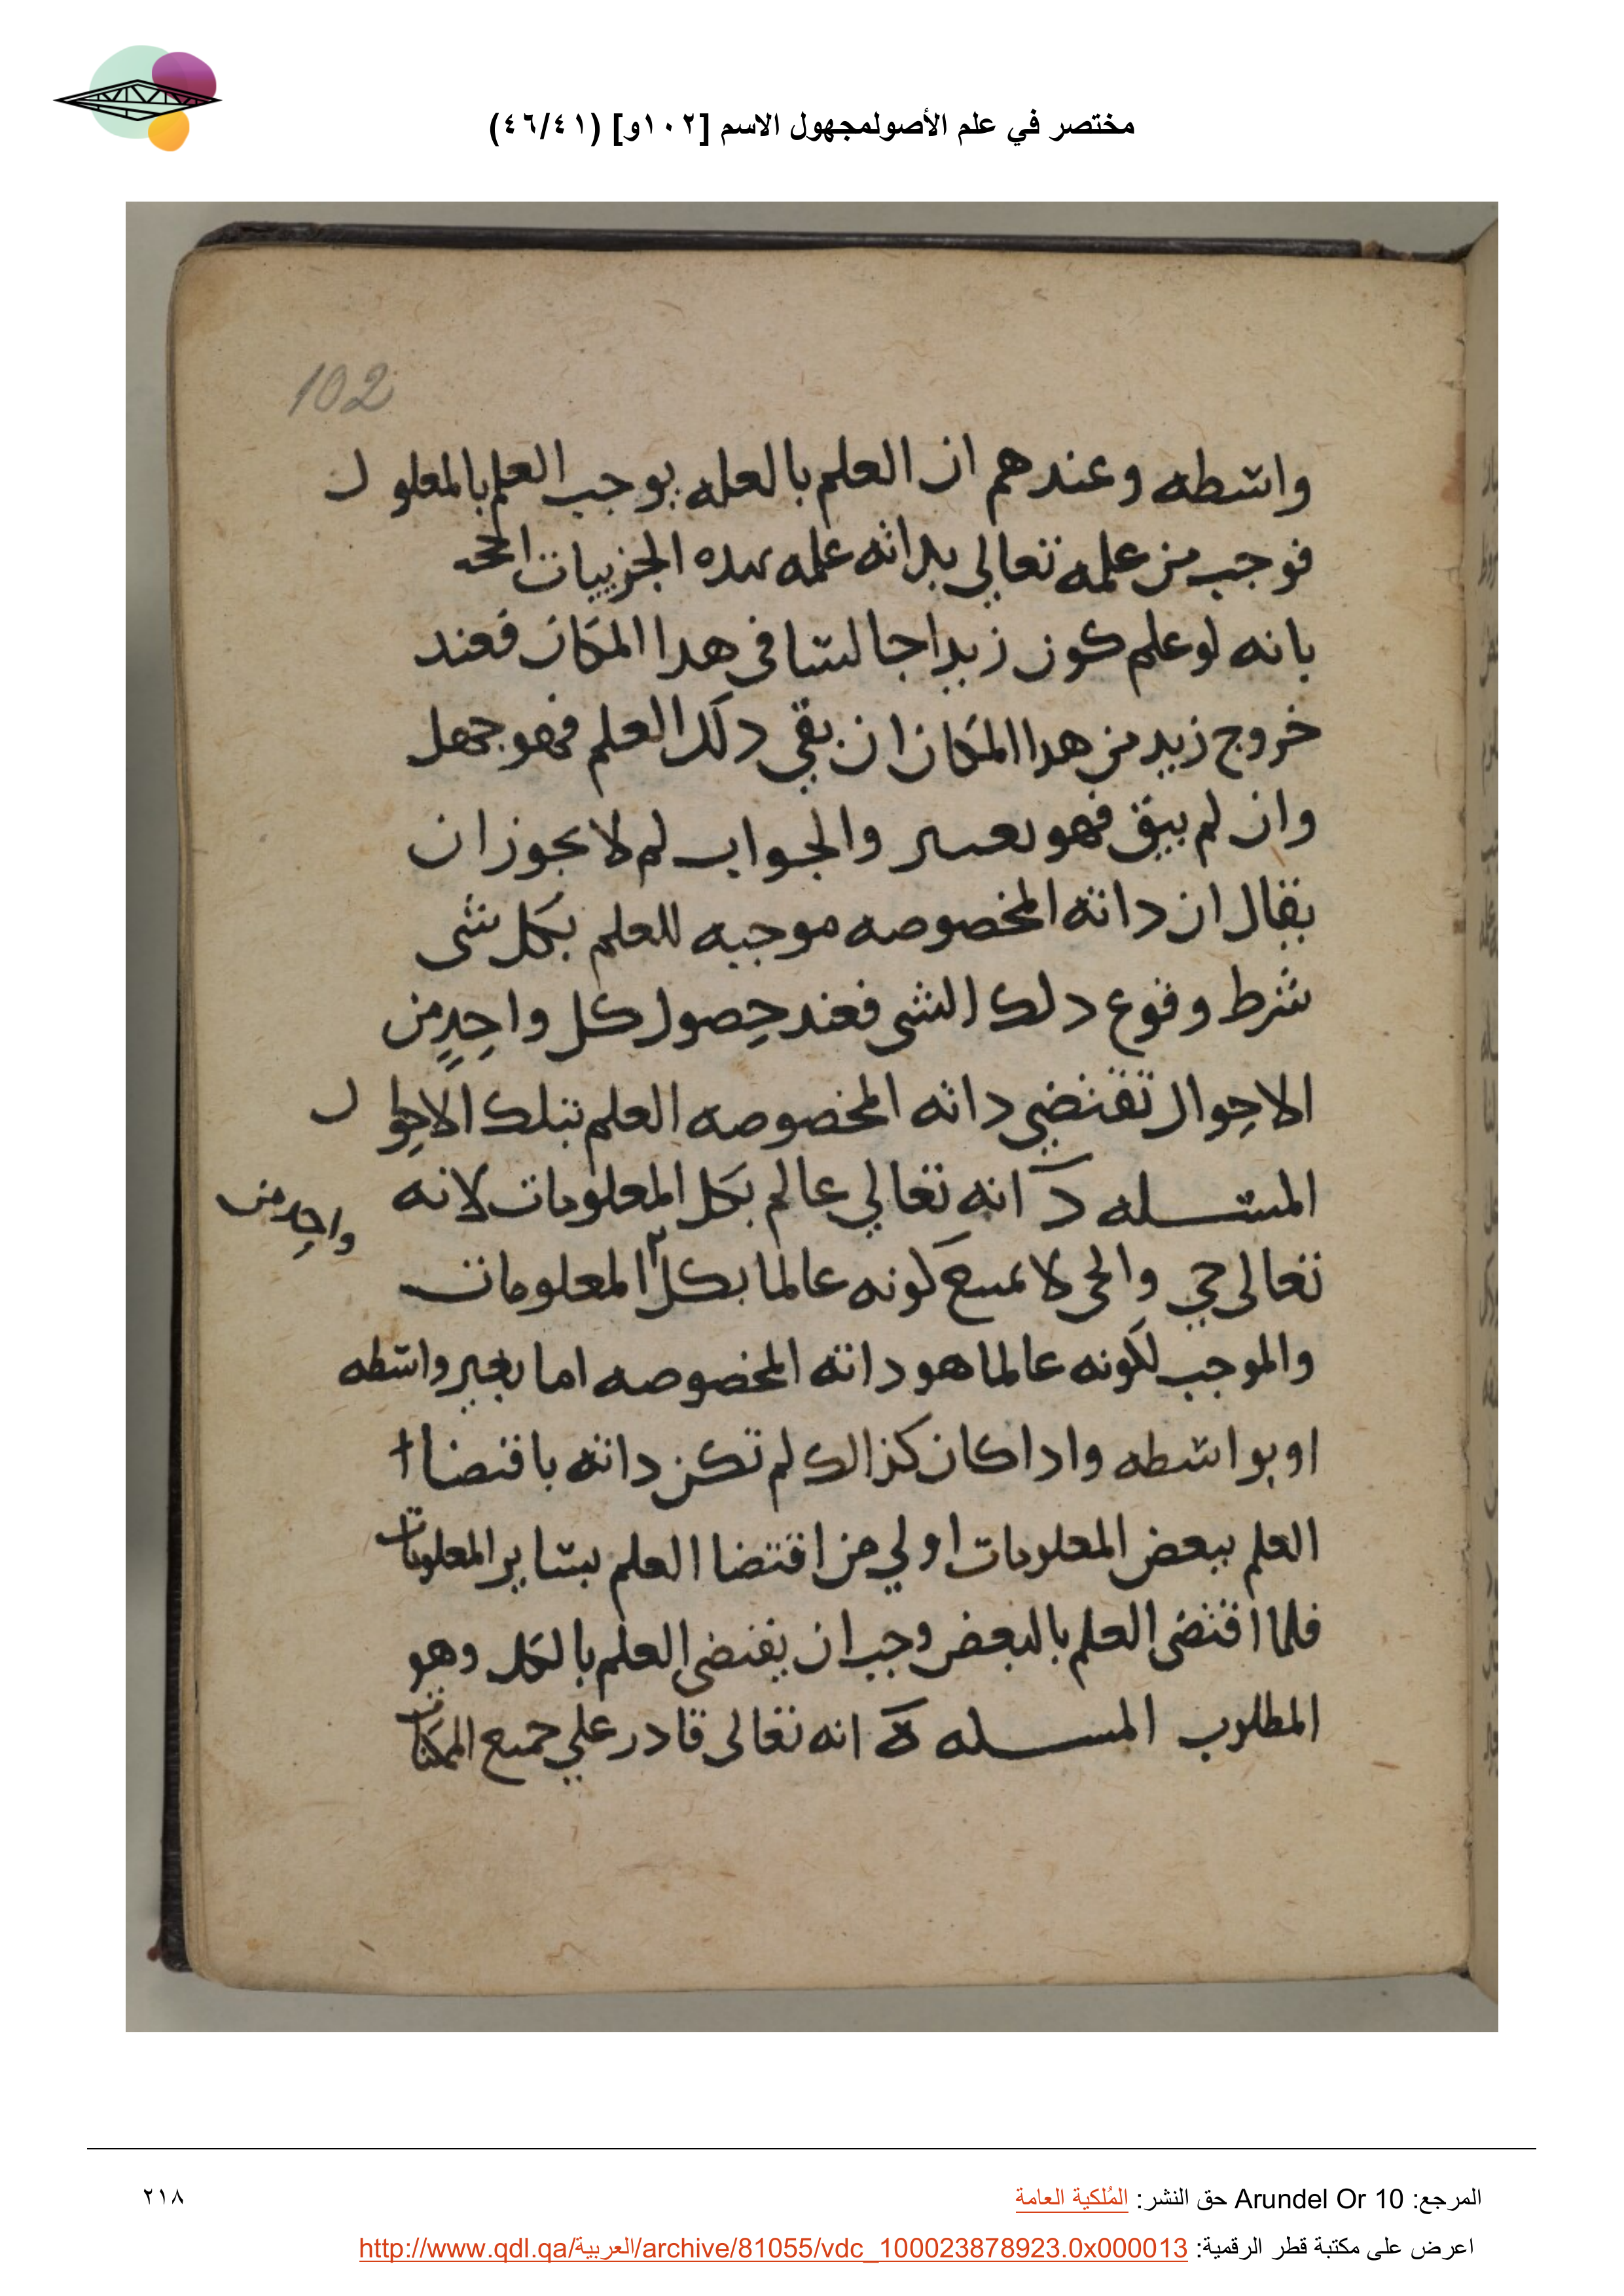 مختصر في علم الأصولمجهول الاسم [١٠٢و] (٤٦/٤١)
102
واسطه وعندهم ان العلم بالعله يوجب العلم بالمعلول
فوجب من علمه تعالي بداته علمه بهده الجزييات احتجوا
بانه لو علم كون زيدا جالسا في هدا المكان فعند
خروج زيد من هدا المكان ان بقي دلك العلم فهو جهل
وان لم يبق فهو تغير والجواب لم لا يجوز ان
يقال ان داته المخصوصه موجبه للعلم بكل شي
شرط وقوع دلك الشي فعند حصول كل واحد من
الاحوال تقتضي داته المخصوصه العلم بتلك الاحوال
المسله د انه تعالي عالم بكل المعلومات لانه
واحد من
تعالى حي والحي لا يمتنع كونه عالما بكل المعلومات
والموجب لكونه عالما هو داته المخصوصه اما بغير واسطه
او بواسطه وادا كان كذالك لم تكن داته باقتضاا
العلم ببعض المعلومات اولي من اقتضا العلم بساير المعلومات
فلما اقتضى العلم بالبعض وجب ان يقتضى العلم بالكل وهو
المطلوب المسله ه انه تعالى قادر علي جميع الممكنات
المرجع: Arundel Or 10 حق النشر: المُلكية العامة
٢١٨
اعرض على مكتبة قطر الرقمية: http://www.qdl.qa/العربية/archive/81055/vdc_100023878923.0x000013